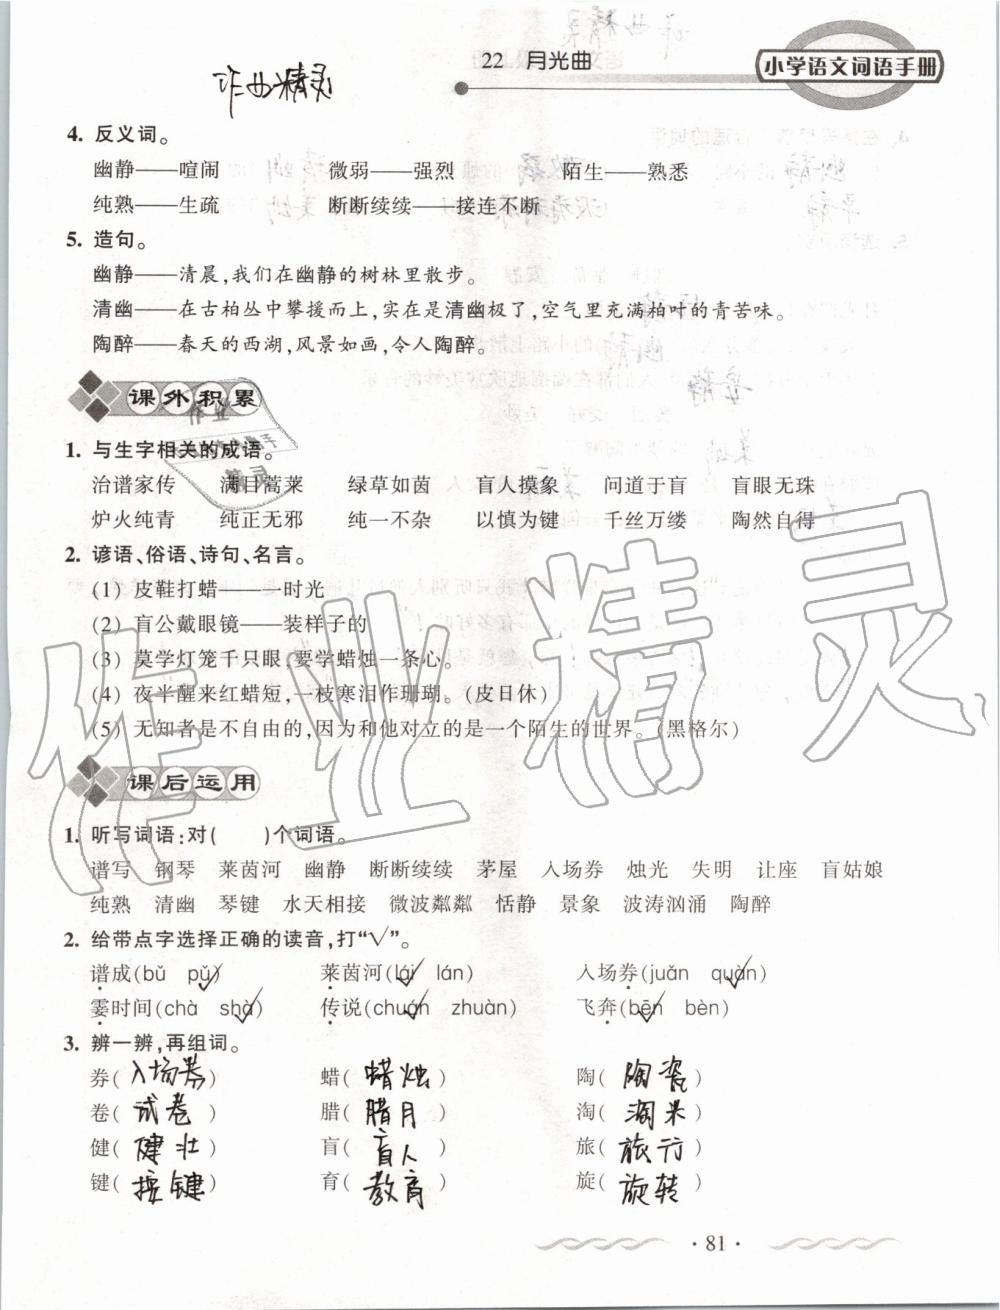 22 月光曲
小学语文词语手册
作业精灵
4. 反义词。
幽静——喧闹 微弱——强烈 陌生——熟悉
纯熟——生疏 断断续续——接连不断
5. 造句。
幽静——清晨,我们在幽静的树林里散步。
清幽——在古柏丛中攀援而上,实在是清幽极了,空气里充满柏叶的青苦味。
陶醉——春天的西湖,风景如画,令人陶醉。
课外积累
1. 与生字相关的成语。
治谱家传 满目蒿莱 绿草如茵 盲人摸象 问道于盲 盲眼无珠
炉火纯青 纯正无邪 纯一不杂 以慎为键 千丝万缕 陶然自得
2. 谚语、俗语、诗句、名言。
(1) 皮鞋打蜡——一时光
(2) 盲公戴眼镜——装样子的
(3) 莫学灯笼千只眼,要学蜡烛一条心。
(4) 夜半醒来红蜡短,一枝寒泪作珊瑚。(皮日休)
(5) 无知者是不自由的,因为和他对立的是一个陌生的世界。(黑格尔)
课后运用
1. 听写词语:对( )个词语。
谱写 钢琴 莱茵河 幽静 断断续续 茅屋 入场券 烛光 失明 让座 盲姑娘
纯熟 清幽 琴键 水天相接 微波粼粼 恬静 景象 波涛汹涌 陶醉
2. 给带点字选择正确的读音,打“√”。
谱成(bǔ pǔ√) 莱茵河(lái√ lán) 入场券(juǎn quàn√)
霎时间(chà shà√) 传说(chuán√ zhuàn) 飞奔(bēn√ bèn)
3. 辨一辨,再组词。
券(入场券) 蜡(蜡烛) 陶(陶瓷)
卷(试卷) 腊(腊月) 淘(淘米)
健(健壮) 盲(盲人) 旅(旅行)
键(按键) 育(教育) 旋(旋转)
· 81 ·
作业精灵